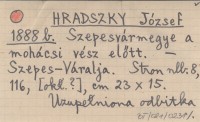 HRADSZKY József
1888 b. Szepesvármegye a
mohácsi vész előtt. —
Szepes-Váralja. Stron nlb. 8,
116, [okl.?], cm 23 x 15.
Uzupełniona odbitka